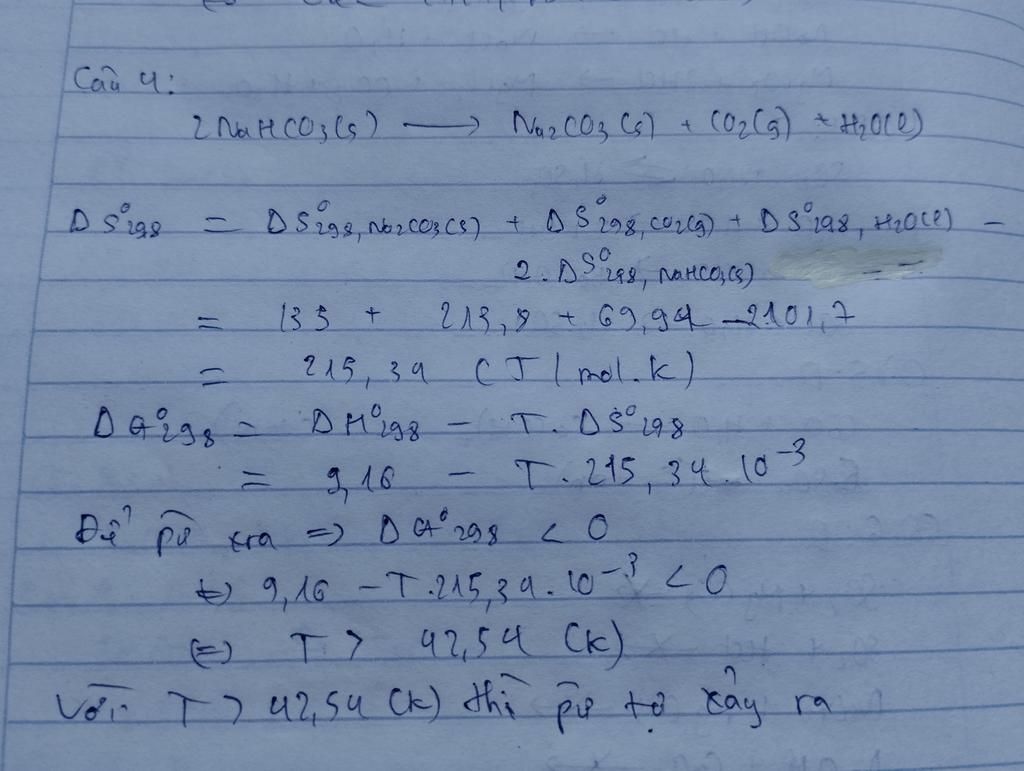 Câu 4:
2NaHCO3(s) → Na2CO3(s) + CO2(g) + H2O(l)
ΔS°298 = ΔS°298, Na2CO3(s) + ΔS°298, CO2(g) + ΔS°298, H2O(l) −
2.ΔS°298, NaHCO3(s)
= 135 + 213,8 + 69,94 − 2.101,7
= 215,34 (J/mol.K)
ΔG°298 = ΔH°298 − T.ΔS°298
= 9,16 − T.215,34.10⁻³
Để pứ xra => ΔG°298 < 0
<=> 9,16 − T.215,34.10⁻³ < 0
(=) T > 42,54 (K)
Với T > 42,54 (K) thì pứ tự xảy ra